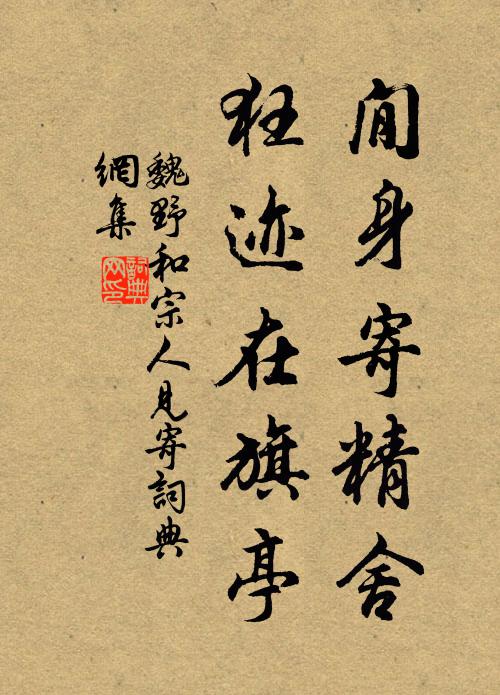 閒身寄精舍
狂迹在旗亭
魏野和宗人見寄詞典
網集
詞典
网印